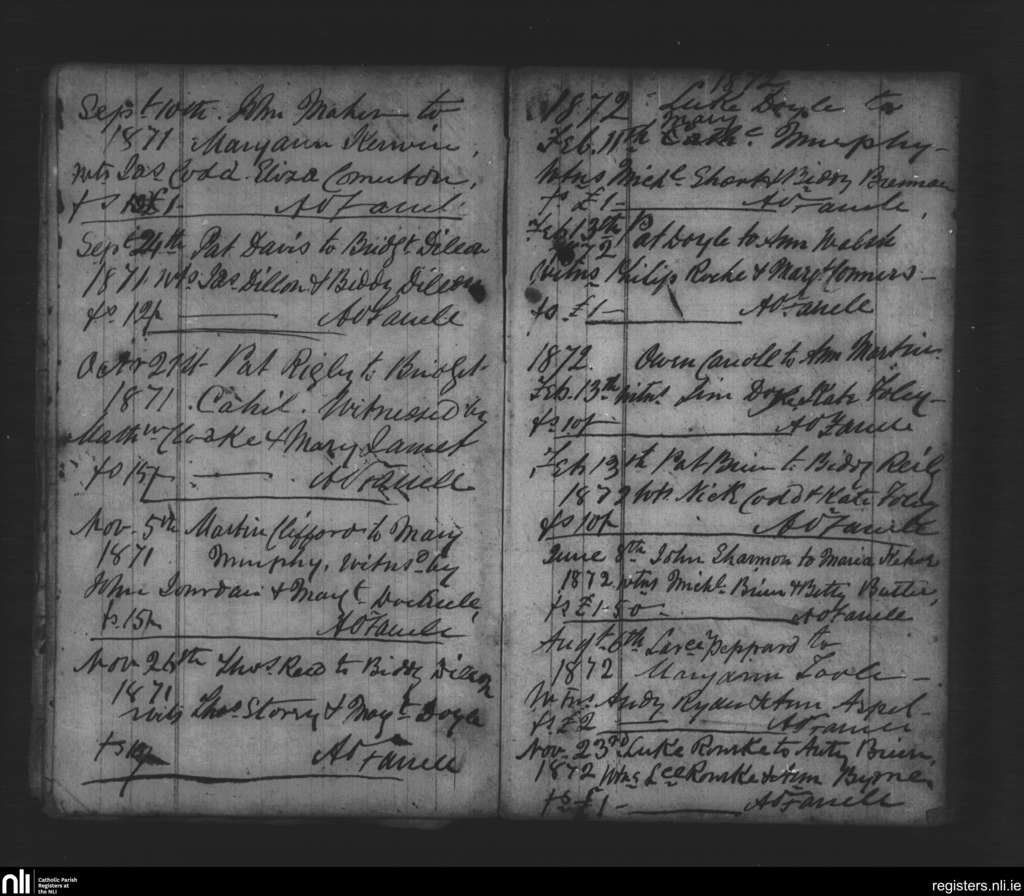 Sept 10th. John Maher to
1871 Maryann Kerwin,
wts Jas Codd. Eliza Comerton,
fs £1- A O'Farrell
Sept 24th Pat Davis to Bridgt Dillon
1871 wts Jas Dillon & Biddy Dillon
fs 12/- A O'Farrell
Octr 21st Pat Rigley to Bridget
1871. Cahil. Witnessed by
Mathw Cloake & Mary James
fs 15/- A O'Farrell
Nov. 5th Martin Clifford to Mary
1871 Murphy, Witnsd by
John Jourdan & Margt
fs 15/- A O'Farrell
Nov 26th Thos Reed to Biddy Dillon
1871
wits Thos Storey & Margt Doyle
fs A O'Farrell
1872
1872 Luke Doyle to
Mary
Feb. 11th Cathe Murphy-
Wtns Michl Short & Biddy Brennan
fs £1- A O'Farrell,
Feb 13th Pat Doyle to Ann Walsh
1872
Witns Philip Roche & Margt Connors-
fs £1- A O'Farrell
1872. Owen Carroll to Ann Martin.
Feb. 13th witns Jim Doyle, Kate Foley-
fs 10/- A O'Farrell
Feb 13th Pat Brien to Biddy Reily
1872 wts Nick Codd & Kate Foley
fs 10/- A O'Farrell
June 8th John Sharmon to Maria Kehoe
1872 wtns Michl Brien & Betty Butler,
fs £1-5 0- A O'Farrell
Augt. 6th Larce Peppard to
1872 Maryann Toole-
Wtns Andy Ryan & Ann Aspel-
fs £2 A O'Farrell
Nov. 23rd Luke Rourke to Anty Brien,
1872 Wtns Lce Rourke & Ann Byrne
fs £1- A O'Farrell
nli Catholic Parish
Registers at
the NLI
registers.nli.ie